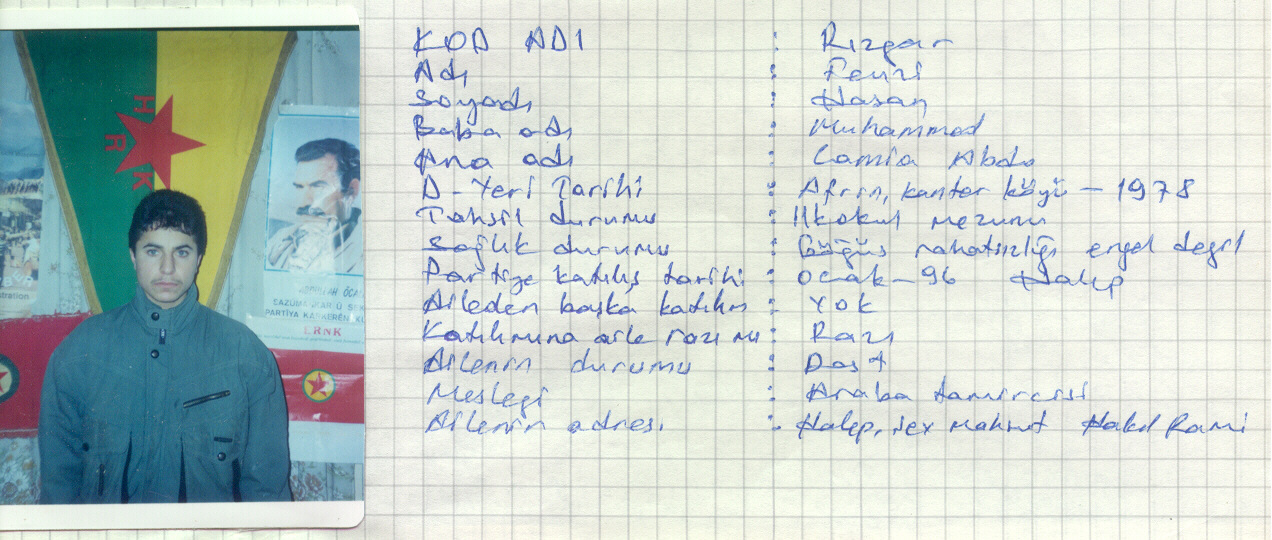 H
R
K
ABDULLAH ÖCAL
PARTİYA KARKERÊN KU
ERNK
KOD ADI : Rızgar
Adı : Fevzi
Soyadı : Hasan
Baba adı : Muhammed
Ana adı : Lamia Abdo
D-Yeri Tarihi : Afrin, kanter köyü – 1978
Tahsil durumu : İlkokul mezunu
Sağlık durumu : Göğüs rahatsızlığı engel degil
Partiye katılış tarihi : Ocak–96 Halep
Aileden başka katılım : Yok
Katılımına aile razı mı : Razı
Ailenin durumu : Dost
Meslegi : Araba tamircisi
Ailenin adresi : Halep, Şex Mahsut Halıl Rami